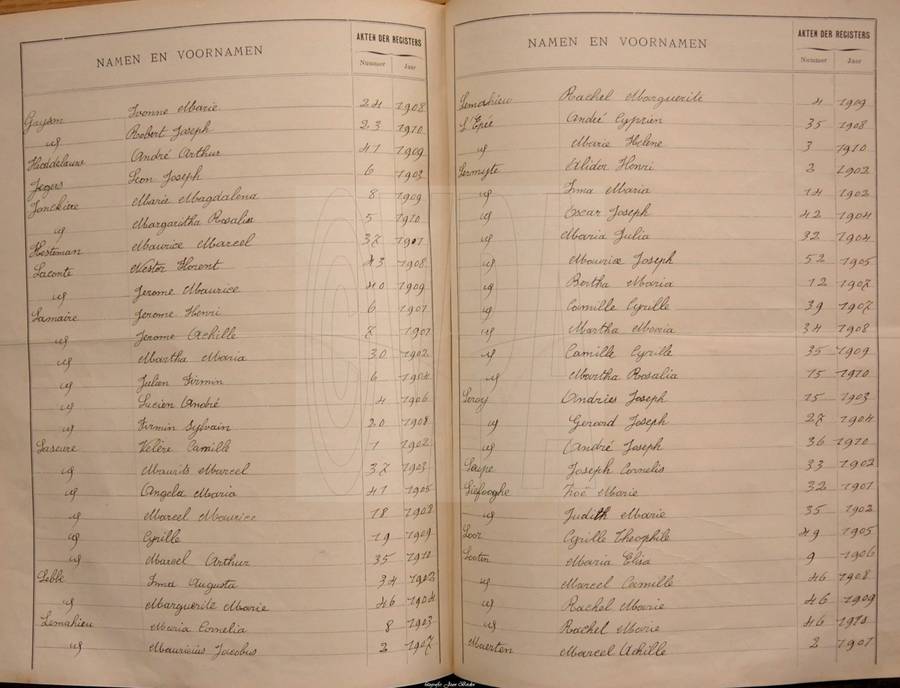 NAMEN EN VOORNAMEN AKTEN DER REGISTERS
Nummer Jaar
Gayson Ivonne Marie 24 1908
id Robert Joseph 23 1910
André Arthur 41 1909
Jegers Leon Joseph 6 1903
Jonckiere Maria Magdalena 8 1909
id Margaritha Rosalia 5 1910
Kesteman Maurice Marcel 37 1901
Laconte Nestor Florent 43 1908
id Jerome Maurice 40 1909
Lamaire Jerome Henri 6 1901
id Jerome Achille 7 1901
id Martha Maria 30 1902
id Julien Firmin 6 1904
id Lucien André 4 1906
id Firmin Sylvain 20 1908
Laseure Valère Camille 1 1902
id Maurits Marcel 37 1903
id Angela Maria 41 1905
id Marcel Maurice 18 1908
id Cyrille 19 1909
id Marcel Arthur 35 1910
Leblé Irma Augusta 34
id Marguerite Marie 46 1904
Lemahieu Maria Cornelia 8 1903
id Mauricius Jacobus 2 1907
NAMEN EN VOORNAMEN AKTEN DER REGISTERS
Nummer Jaar
Lemahieu Rachel Marguerite 4 1909
L'Epée André Cyprien 35 1908
id Marie Helene 3 1910
Lermyte Alidor Henri 2 1902
id Irma Maria 14 1902
id Oscar Joseph 42 1904
id Maria Julia 32 1904
id Maurice Joseph 52 1905
id Bertha Maria 12 1907
id Camille Cyrille 39 1907
id Martha Maria 34 1908
id Camille Cyrille 35 1909
id Martha Rosalia 15 1910
Leroy Andries Joseph 15 1903
id Gerard Joseph 27 1904
id André Joseph 36 1910
Leupe Joseph Cornelis 33 1902
Liefooghe Zoë Marie 32 1901
id Judith Marie 35 1902
Loor Cyrille Theophile 49 1905
Lootin Maria Elisa 9 1906
id Marcel Camille 46 1908
id Rachel Marie 46 1909
id Rachel Marie 46 1910
Maerten Marcel Achille 2 1901